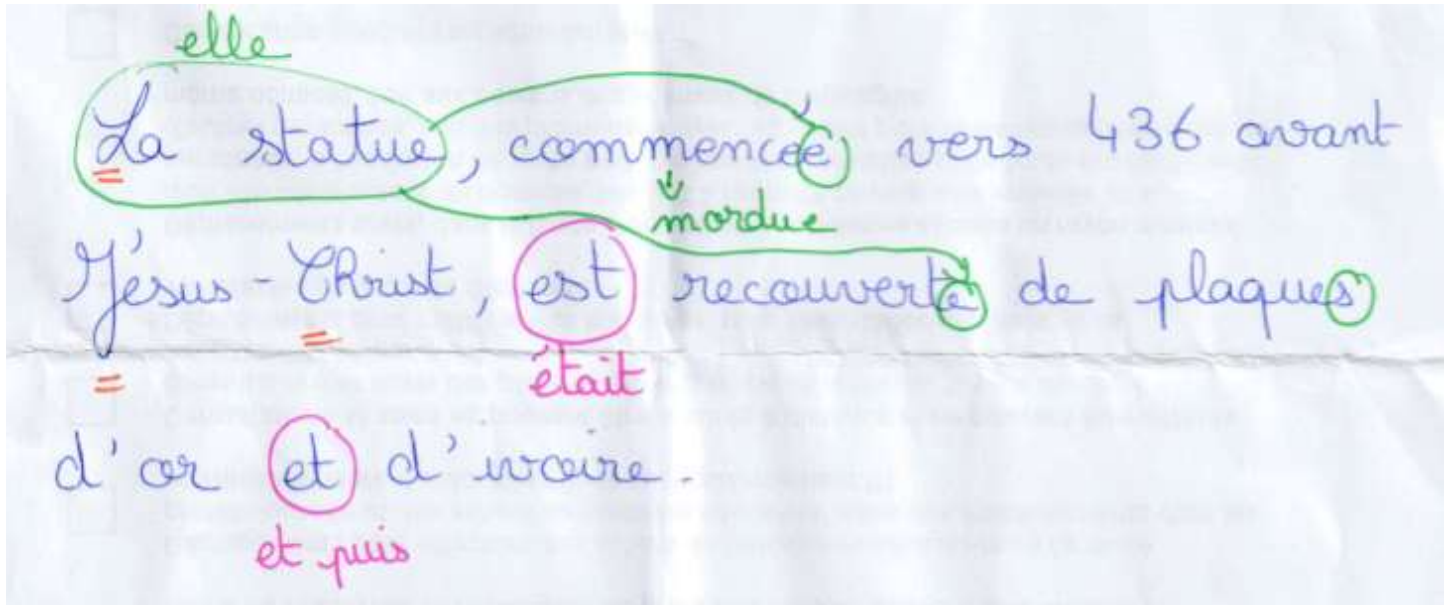 elle
La statue, commencée vers 436 avant
mordue
Jésus-Christ, est recouverte de plaques
était
d'or et d'ivoire.
et puis